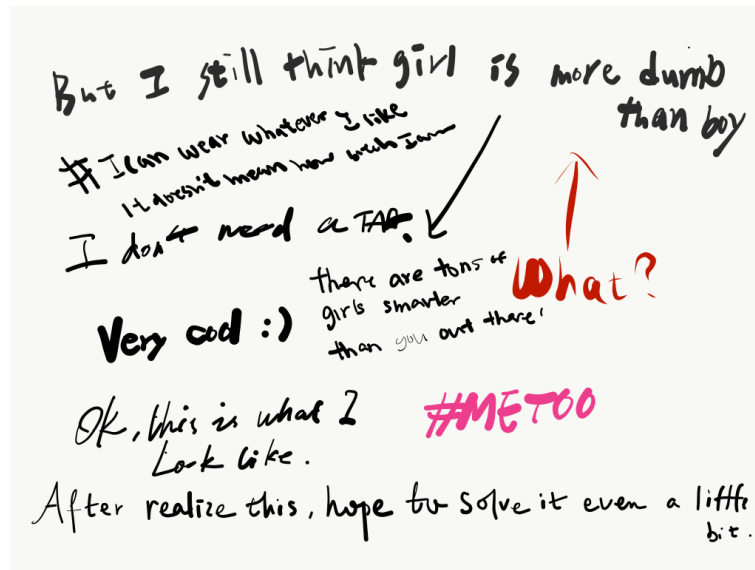 But I still think girl is more dumb
than boy
# I can wear whatever I like
It doesn't mean how I am
I don't need a TAG.
there are tons of
girls smarter
than you out there!
What?
Very cool :)
Ok, this is what I
Look like.
#METOO
After realize this, hope to solve it even a little
bit.